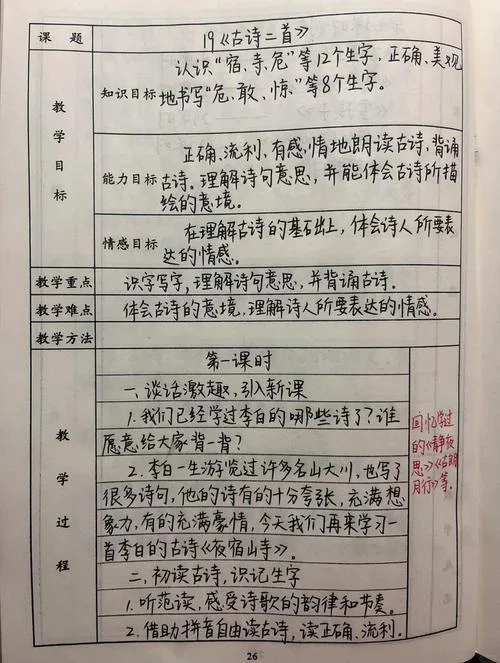 课题
19《古诗二首》
教学目标
知识目标
认识“宿、寺、危”等12个生字，正确、美观
地书写“危、敢、惊”等8个生字。
能力目标
正确、流利、有感情地朗读古诗，背诵
古诗。理解诗句意思，并能体会古诗所描
绘的意境。
情感目标
在理解古诗的基础上，体会诗人所要表
达的情感。
教学重点
识字写字，理解诗句意思，并背诵古诗。
教学难点
体会古诗的意境，理解诗人所要表达的情感。
教学方法
教学过程
第一课时
一、谈话激趣，引入新课
1.我们已经学过李白的哪些诗了？谁
愿意给大家背一背？
2.李白一生游览过许多名山大川，也写了
很多诗句，他的诗有的十分夸张，充满想
象力，有的充满豪情，今天我们再来学习一
首李白的古诗《夜宿山寺》。
二、初读古诗，识记生字
1.听范读，感受诗歌的韵律和节奏。
2.借助拼音自由读古诗，读正确、流利。
回忆学过
的《静夜
思》《古朗
月行》等。
26